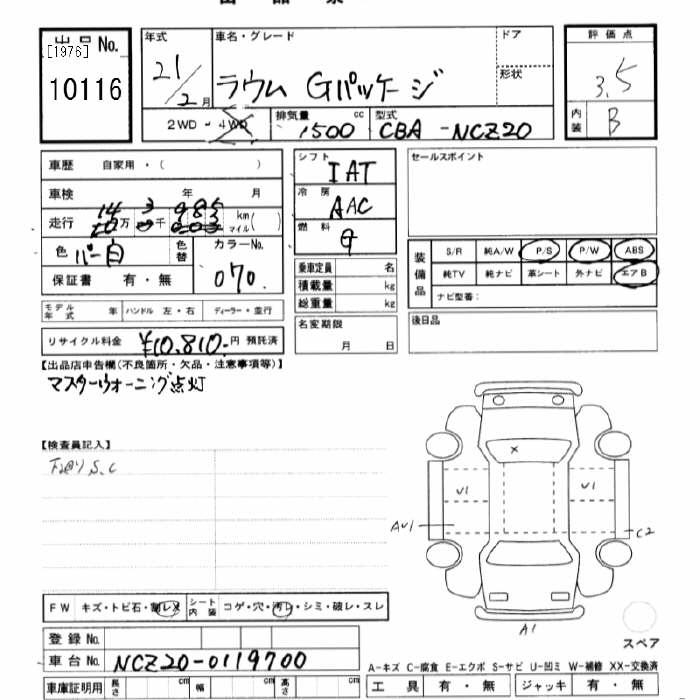 出品No.
[1976]
10116
年式
21/2月
車名・グレード
ラウム Gパッケージ
ドア
形状
評価点
3.5
内装
B
2WD・4WD
排気量
1500 cc
型式
CBA-NCZ20
車歴 自家用・( )
車検 年 月
走行 万 千 km マイル( )
14 3 985
色 パー白
色替
カラーNo.
070
保証書 有・無
シフト
IAT
冷房
AAC
燃料
G
乗車定員 名
積載量 kg
総重量 kg
セールスポイント
装備品
S/R 純A/W P/S P/W ABS
純TV 純ナビ 革シート 外ナビ エアB
ナビ型番：
モデル年式 年 ハンドル 左・右 ディーラー・並行
リサイクル料金 ¥10,810.円 預託済
名変期限
月 日
後日品
【出品店申告欄(不良箇所・欠品・注意事項等)】
マスターウォーニング点灯
【検査員記入】
下廻りS.C
×
U1
U1
AU1
C2
A1
FW キズ・トビ石・割レ・X
シート内装 コゲ・穴・汚レ・シミ・破レ・スレ
登録No.
車台No. NCZ20-0119700
車庫証明用 長さ cm 幅 cm 高さ cm
スペア
A-キズ C-腐食 E-エクボ S-サビ U-凹ミ W-補修 XX-交換済
工具 有・無 ジャッキ 有・無